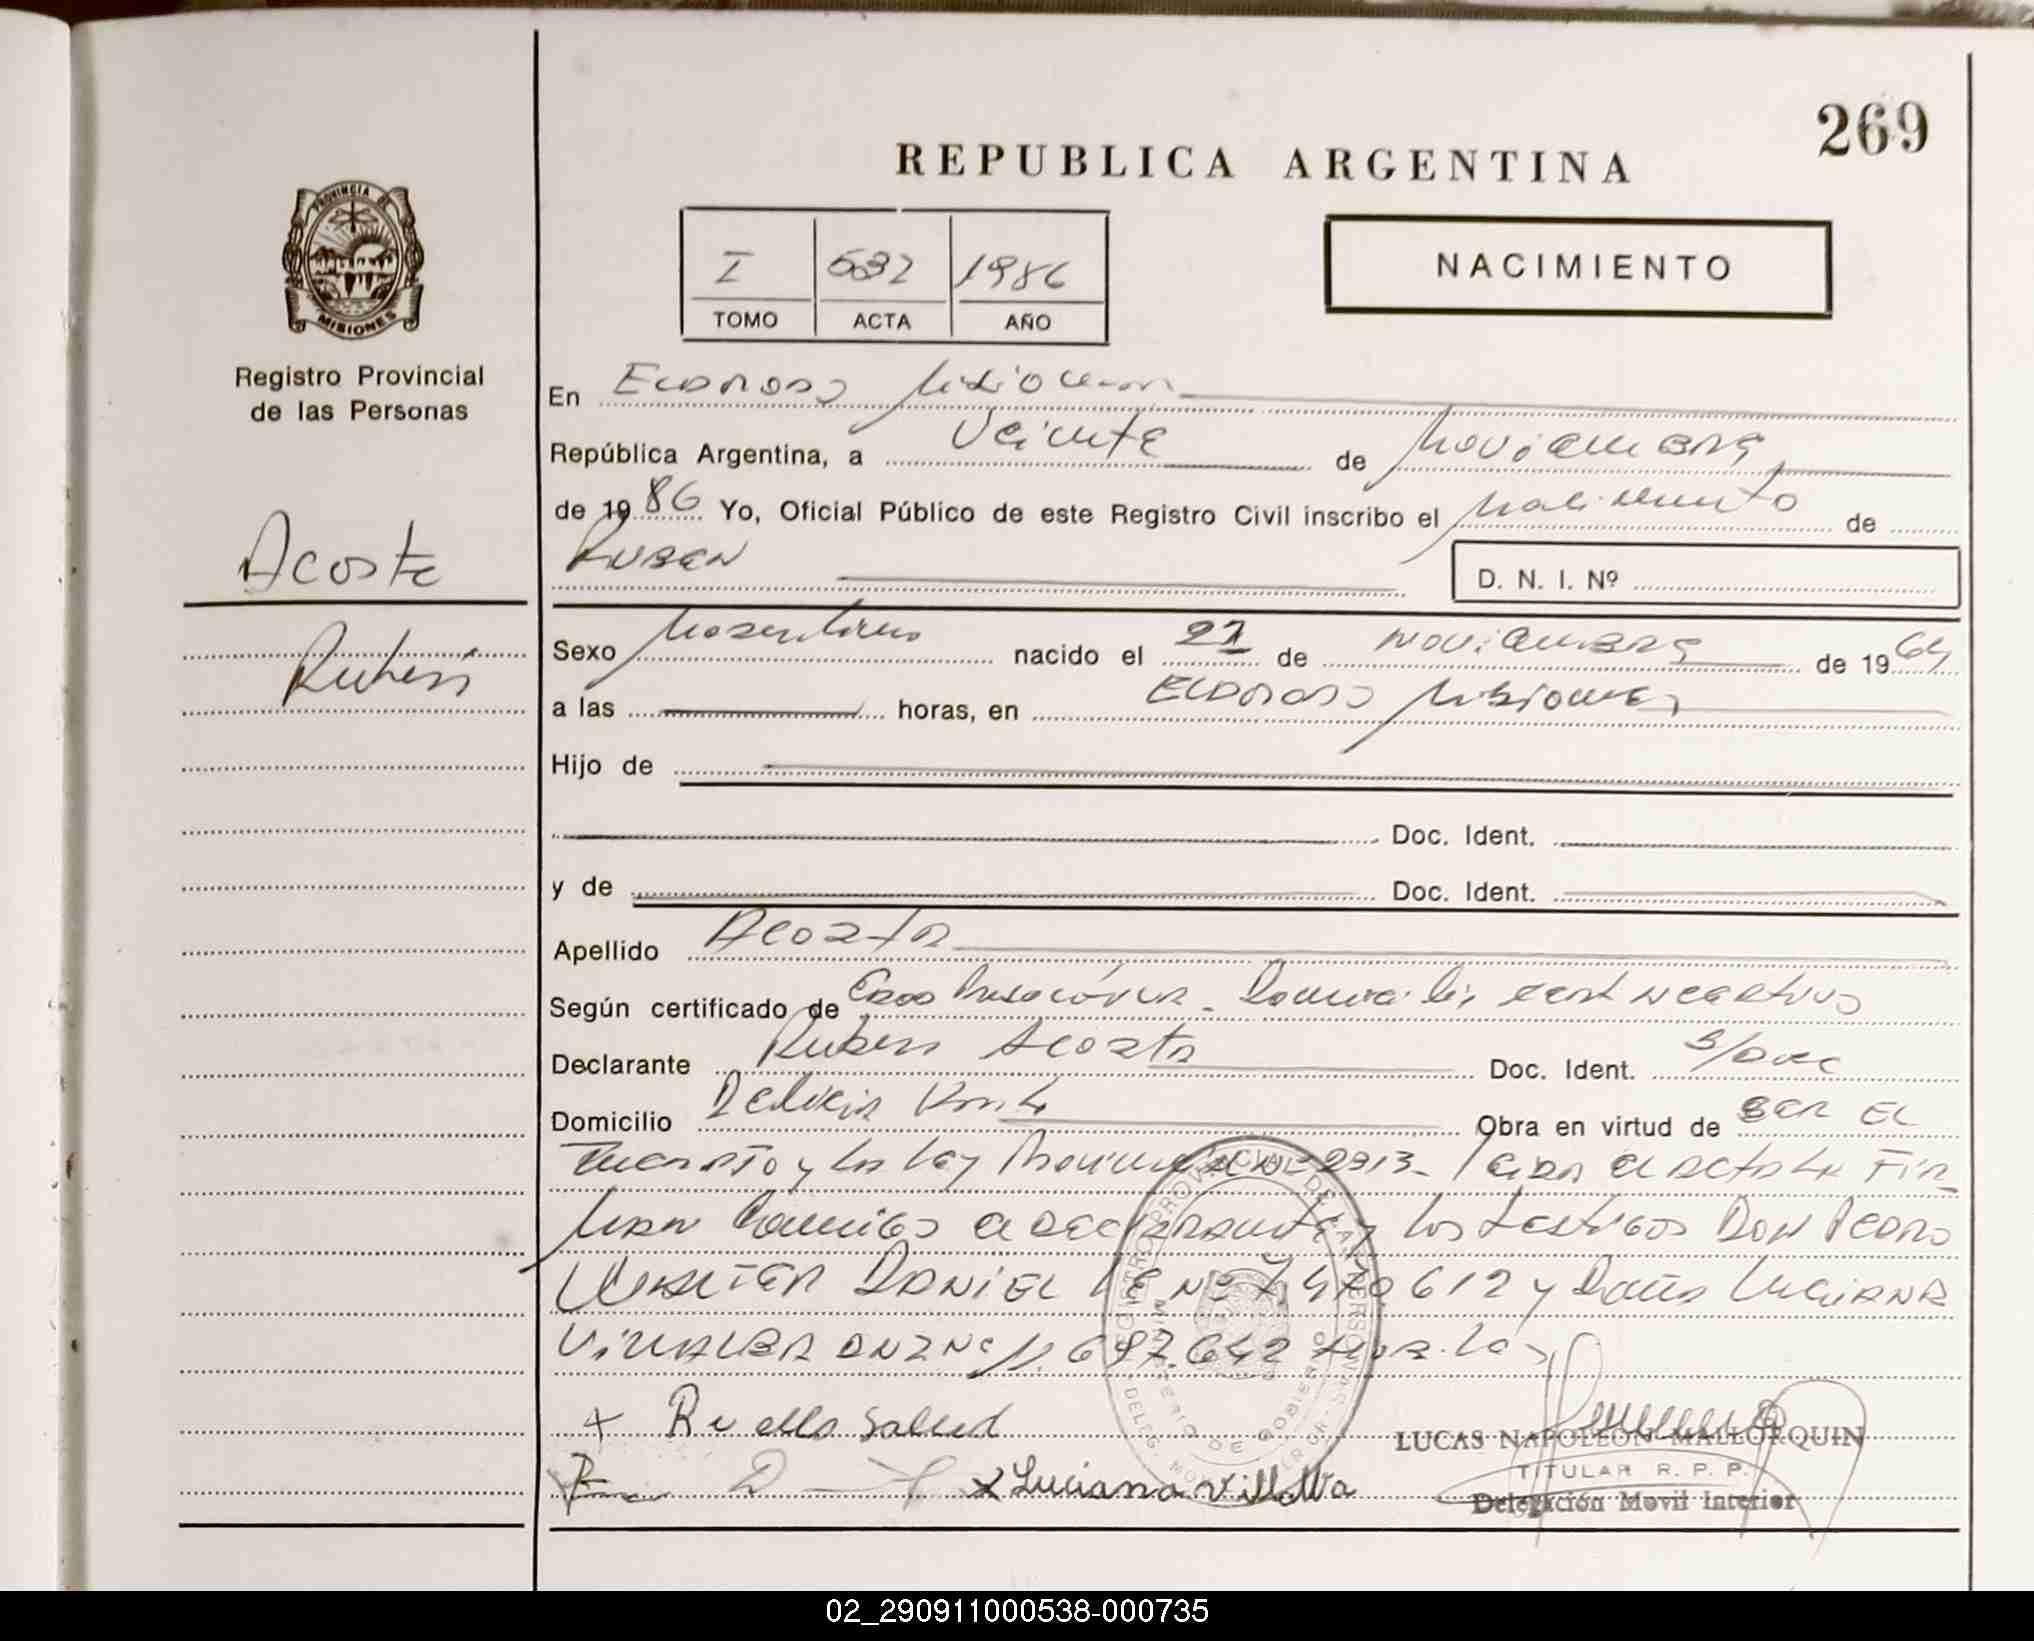 269
REPUBLICA ARGENTINA
PROVINCIA DE
MISIONES
Registro Provincial
de las Personas
I 532 1986
TOMO ACTA AÑO
NACIMIENTO
En ELDORADO Misiones
República Argentina, a Veinte de Noviembre
de 1986 Yo, Oficial Público de este Registro Civil inscribo el Nacimiento de
RUBEN
D. N. I. Nº
Acosta
Ruben
Sexo Masculino nacido el 22 de NOVIEMBRE de 1964
a las horas, en ELDORADO Misiones
Hijo de
Doc. Ident.
y de Doc. Ident.
Apellido Acosta
Según certificado de cert NEGATIVO
Declarante Ruben Acosta Doc. Ident. S/Doc
Domicilio Obra en virtud de SER EL
y la Ley Provincial Nº 2913- Leida el acta la FIR
MAN Conmigo el DECLARANTE y los testigos DON PEDRO
WALTER DANIEL LE Nº 7.470612 y Doña LUCIANA
VILLALBA DNI Nº 11.687.642
+ Rv ello Salud
x Luciana Villalba
LUCAS NAPOLEON MALLORQUIN
TITULAR R. P. P.
Delegación Movil Interior
REGISTRO PROVINCIAL DE LAS PERSONAS
MINISTERIO DE GOBIERNO
02_290911000538-000735